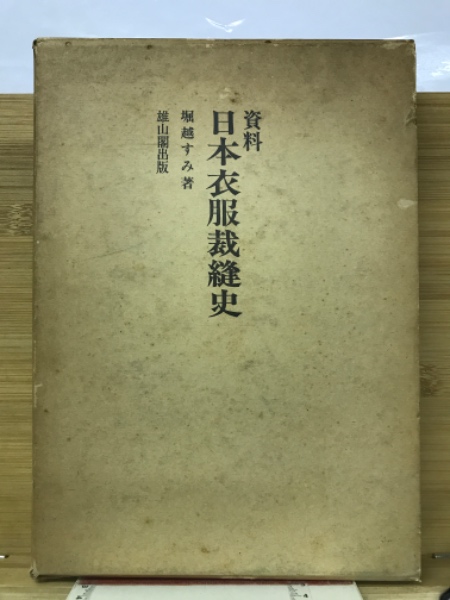 資料
日本衣服裁縫史
堀越すみ著
雄山閣出版